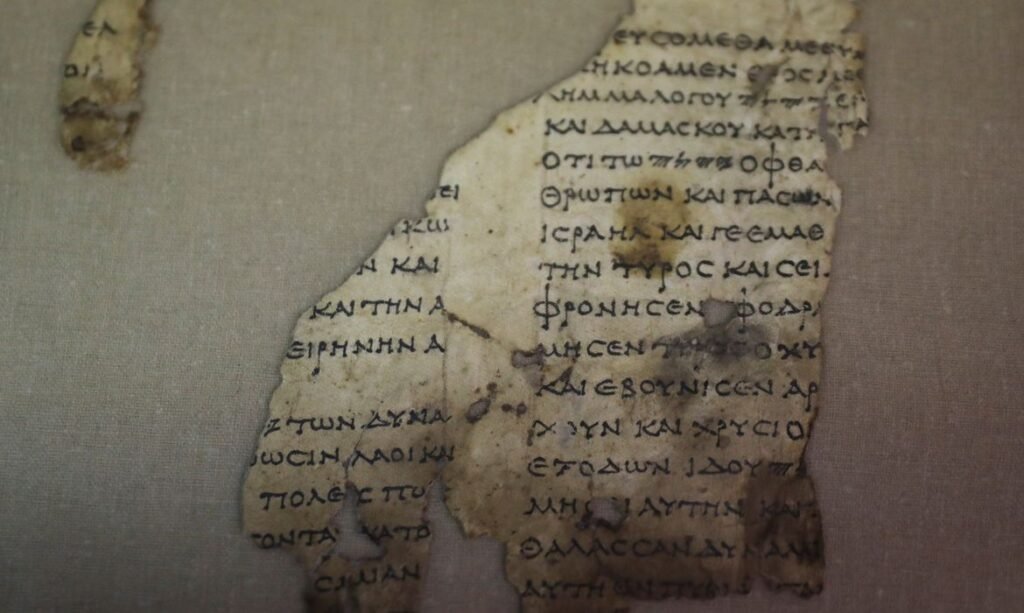 ΕΛ
ΟΙ
ΕΙ
ΚΩ
Ν ΚΑΙ
ΚΑΙ ΤΗΝ Α
ΕΙΡΗΝΗΝ Α
ΤΩΝ ΔΥΝΑ
ΩϹΙΝ ΛΑΟΙ ΚΑΙ
ΠΟΛΕΙϹ ΠΟ
ΟΝΤΑΙ ΚΑΤΟ
ΜΙΑΝ
ΕΥϹΟΜΕΘΑ ΜΕ
ΚΗΚΟΑΜΕΝ
ΛΗΜΜΑ ΛΟΓΟΥ 𐤉𐤄𐤅𐤄
ΚΑΙ ΔΑΜΑϹΚΟΥ ΚΑΤΑ
ΟΤΙ ΤΩ 𐤉𐤄𐤅𐤄 ΟΦΘΑ
ΘΡΩΠΩΝ ΚΑΙ ΠΑϹΩΝ
ΙϹΡΑΗΛ ΚΑΙ ΓΕ ΕΜΑΘ
ΤΗΝ ΤΥΡΟϹ ΚΑΙ ϹΕΙ
ΦΡΟΝΗϹΕΝ ϹΦΟΔΡΑ
ΜΗϹΕΝ ΤΥΡΟϹ ΟΧΥ
ΚΑΙ ΕΒΟΥΝΙϹΕΝ ΑΡ
ΧΟΥΝ ΚΑΙ ΧΡΥϹΙΟ
ΕΞΟΔΩΝ ΙΔΟΥ
ΑΥΤΗΝ ΚΑΙ
ΘΑΛΑϹϹΑΝ ΔΥΝΑΜΙ
ΑΥΤΗ